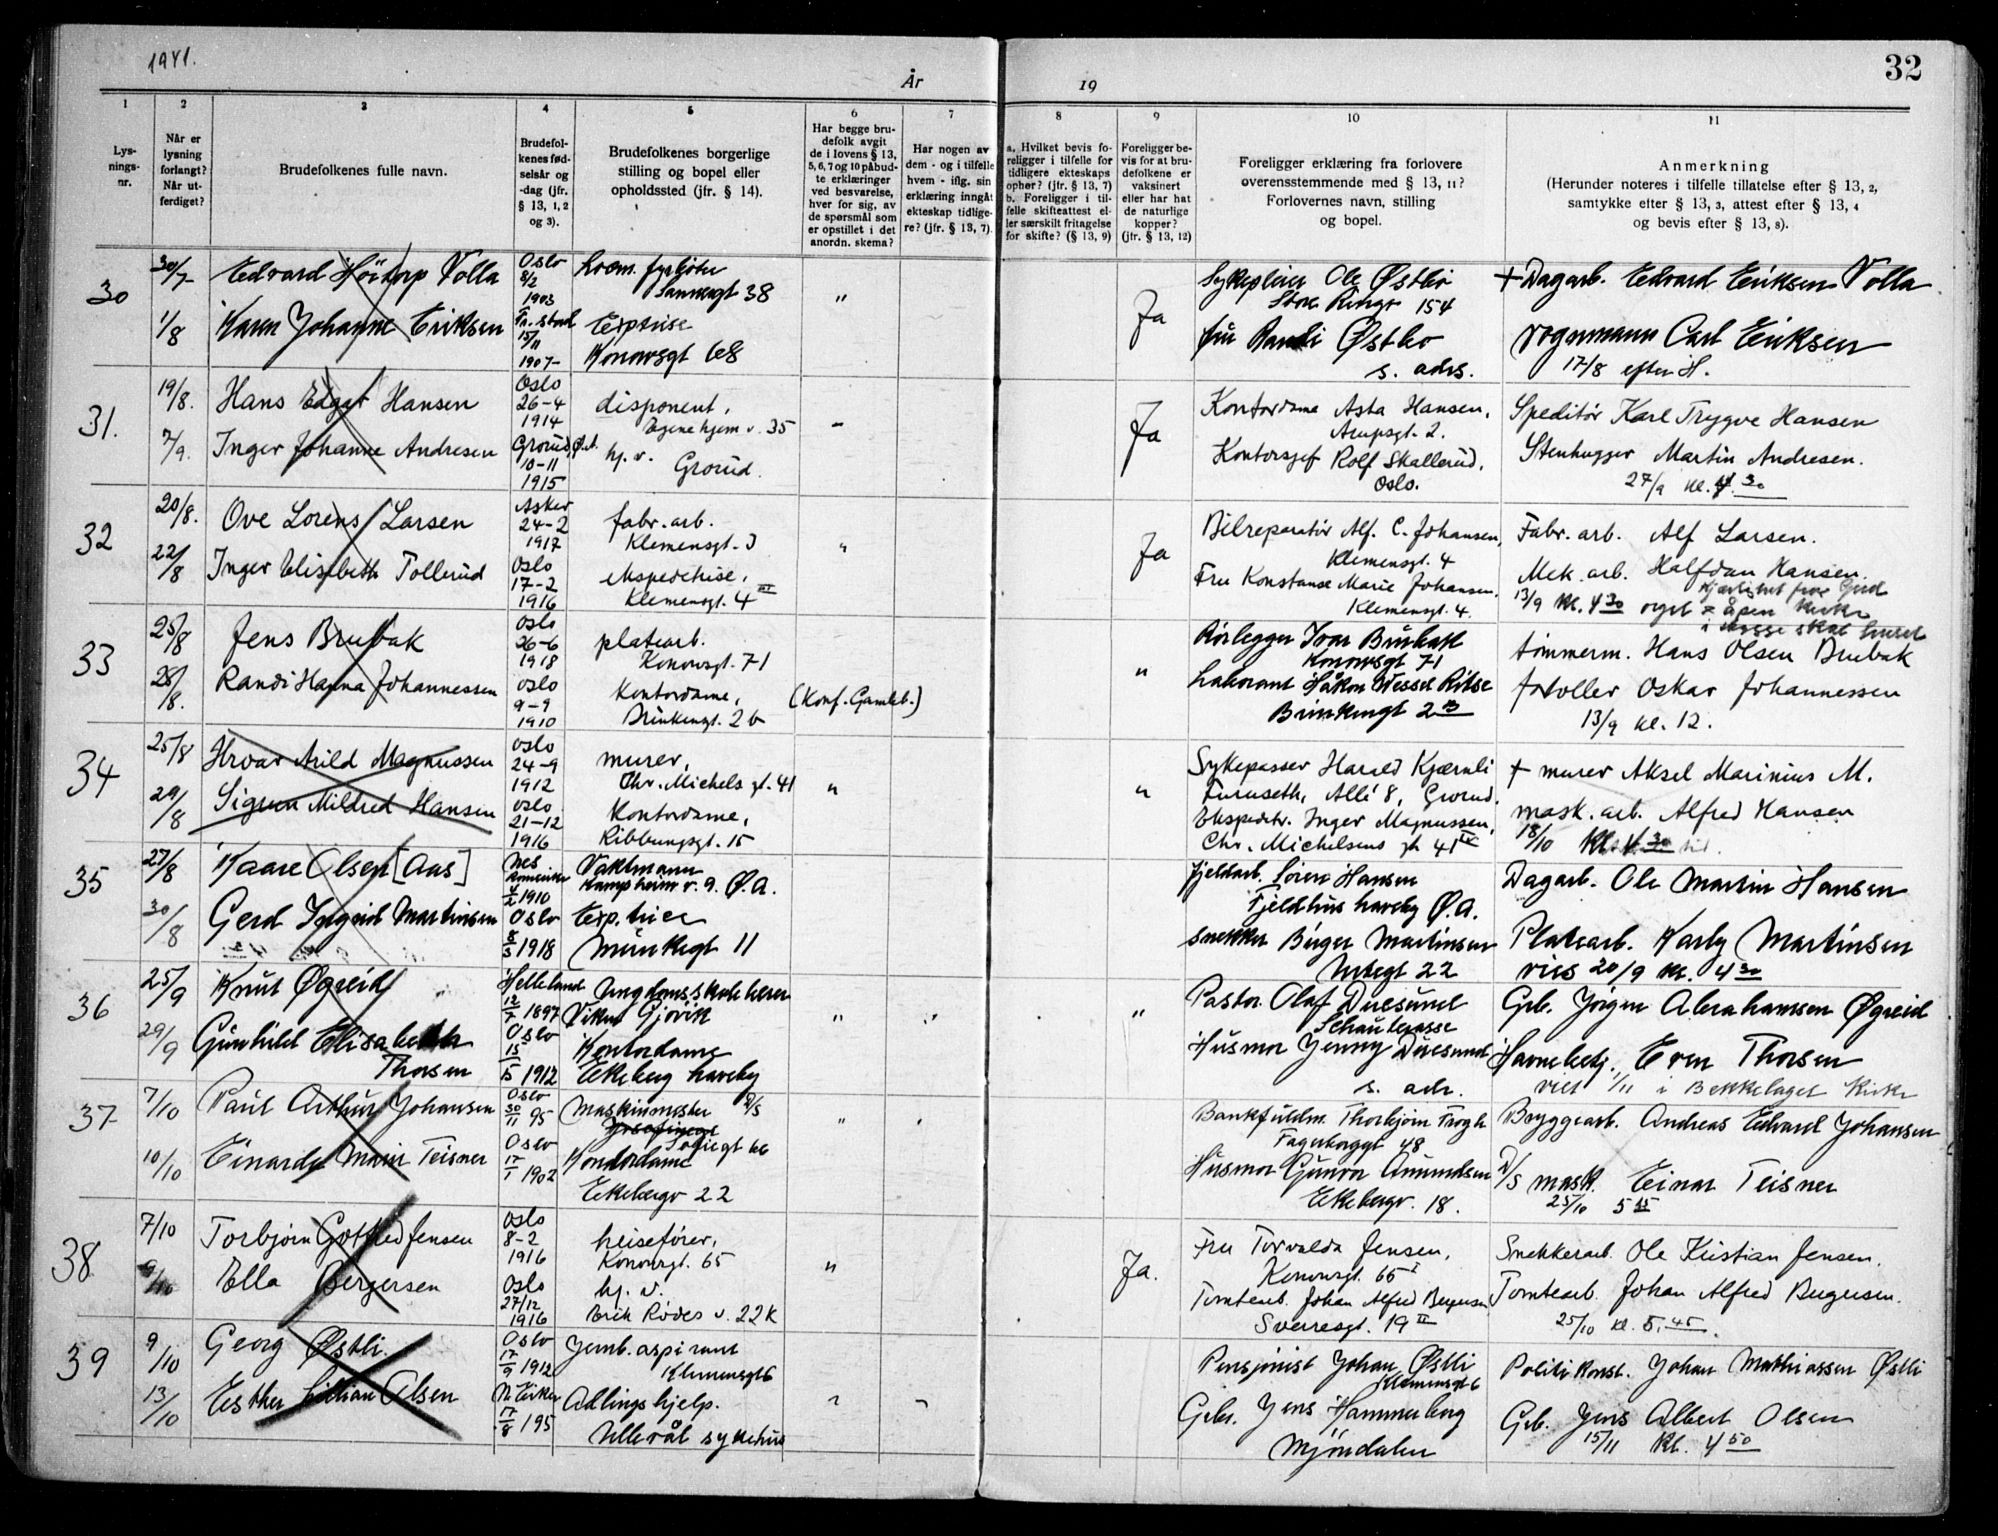 1941.
År
19
32
1
2
3
4
5
6
7
8
9
10
11
Lys-
nings-
nr.
Når er
lysning
forlangt?
Når ut-
ferdiget?
Brudefolkenes fulle navn.
Brudefol-
kenes fød-
selsår og
-dag (jfr.
§ 13, 1, 2
og 3).
Brudefolkenes borgerlige
stilling og bopel eller
opholdssted (jfr. § 14).
Har begge bru-
defolk avgit
de i lovens § 13,
5, 6, 7 og 10 påbud-
te erklæringer
ved besvarelse,
hver for sig, av
de spørsmål som
er opstillet i det
anordn. skema?
Har nogen av
dem - og i tilfelle
hvem - iflg. sin
erklæring inngåt
ekteskap tidlige-
re? (jfr. § 13, 7).
a. Hvilket bevis fo-
religger i tilfelle for
tidligere ekteskaps
opher? (jfr. § 13, 7)
b. Foreligger i til-
felle skifteattest el-
ler særskilt fritagelse
for skifte? (§ 13, 9)
Foreligger be-
vis for at bru-
defolkene er
vaksinert
eller har hat
de naturlige
kopper?
(jfr. § 13, 12)
Foreligger erklæring fra forlovere
overensstemmende med § 13, 11?
Forlovernes navn, stilling
og bopel.
Anmerkning
(Herunder noteres i tilfelle tillatelse efter § 13, 2,
samtykke efter § 13, 3, attest efter § 13, 4
og bevis efter § 13, 8).
30
30/7
Edvard Höitorp Volla
Oslo
8/2
1903
Sannergt 38
"
Ja
Ole Østbø
Store Ringv 154
+ Dagarb. Edvard Eriksen Volla
1/8
Karen Johanne Eriksen
Fr.stad
15/11
1907
Exptrise
Konowsgt 68
fru Randi Østbo
s. adrs.
Vognmann Carl Eriksen
17/8 efter H.
31.
19/8.
Hans Edgar Hansen
Oslo
26-4
1914
disponent,
Egne hjem v. 35
Ja
Kontordame Asta Hansen,
Arupsgt. 2.
Speditör Karl Trygve Hansen
7/9.
Inger Johanne Andresen
Grorud, Ø.A.
10-11
1915
hj. v.
Grorud.
Kontorsjef Rolf Skallerud,
Oslo.
Stenhugger Martin Andresen.
27/9 kl. 4 30
32
20/8.
Ove Lorens Larsen
Asker
24-2
1917
fabr. arb.
Klemensgt. 3
"
Ja
Bilreparatör Alf. C. Johansen,
Klemensgt. 4
Fabr. arb. Alf Larsen.
22/8
Inger Elisebeth Tollerud
Oslo
17-2
1916
ekspeditrise,
Klemensgt. 4 III
Fru Konstanse Marie Johansen,
Klemensgt. 4
Mek. arb. Halfdan Hansen.
13/9 Kl. 4 30
33
25/8
Jens Brubak
Oslo
26-6
1918
platearb.
Konowsgt. 71
"
Rörlegger Ivar Brubak
Konowsgt 71
tömmerm. Hans Olsen Brubak
28/8.
Randi Hanna Johannessen
Oslo
9-9
1910
Kontordame,
Brinkengt. 2 b
(Konf. Gamleb.)
Laborant Håkon Wessel
Brinkengt 2 B
Oskar Johannessen
13/9 kl. 12.
34
25/8
Hroar Arild Magnussen
Oslo
24-9
1912
murer,
Chr. Michels gt. 41
"
"
Sykepasser Harald Kjærnli
Furuseth, Allé 8, Grorud.
+ murer Aksel Marinius M.
29/8
Sigrun Mildred Hansen
Oslo
21-12
1916
Kontordame,
Ribbungsgt. 15
Ekspeditr. Inger Magnussen,
Chr. Michelsens gt 41 IV
mask. arb. Alfred Hansen
18/10 Kl. 4 30
35
27/8
Kaare Olsen [Aas]
Nes
4/2 1910
Vaktmann
Kampheim v. 9. Ø.A.
Fjeldarb. Sören Hansen
Fjeldhus haveby Ø.A.
Dagarb. Ole Martin Hansen
30/8
Gerd Ingrid Martinsen
Oslo
8/3 1918
Exp. trice
Munkegt 11
Snekker Birger Martinsen
22
Platearb. Karly Martinsen
vies 20/9 Kl. 4 30
36
25/9
Knut Øgreid
Helleland
12/7 1897
Ungdomsskolelærer
Viken Gjövik
"
"
"
Pastor Olaf Duesund
Schaulerasse
Grb. Jörgen Abrahamsen Øgreid
29/9
Gunhild Elisabeth
Thorsen
Oslo
1912
Kontordame
Ekeberg haveby
Husmor Jenny Duesund
s. adr.
Even Thorsen
viet 1/11 i Bekkelaget Kirke
37
7/10
Paul Arthur Johansen
Oslo
30/11 95
Maskinmester D/S
Sofiegt
"
Bankfuldm. Thorbjörn
Fagerborggt 48
Bryggearb. Andreas Edvard Johansen
10/10
Einardy Marie Teisner
Oslo
17/1 1902
Kontordame
Ekebergv 22
Husmor Gunvor Amundsen
Ekebergv. 18.
D/S mask. Einar Teisner
25/10 5 15
38
7/10
Torbjörn Gotfred Jensen
Oslo
8-2
1916
heisefører,
Konowsgt. 65
"
Ja.
Fru Torvalda Jensen,
Konowsgt. 65 I
Snekkerarb. Ole Kristian Jensen.
9/10
Ella Bergersen
Oslo
27/12
1916
hj. v.
Erik Rödes v. 22 K
Tomtearb. Johan Alfred Bergersen
Sverresgt. 19 II
Tomtearb. Johan Alfred Bergersen.
25/10 kl. 5.45.
39
9/10
Georg Østli.
Oslo
17/9 1912
Jernb. aspirant
Klemensgt 6
Pensjonist Johan Østli
Klemensgt 6
Politikonst. Johan Mathiassen Østli
13/10
Esther Lillian Olsen
N. Eiker
17/8 195
Adlingshjelp.
Ullevål sykehus
Grbr. Jens Hammerborg
Mjöndalen
Grb. Jens Albert Olsen
15/11 Kl. 4 50